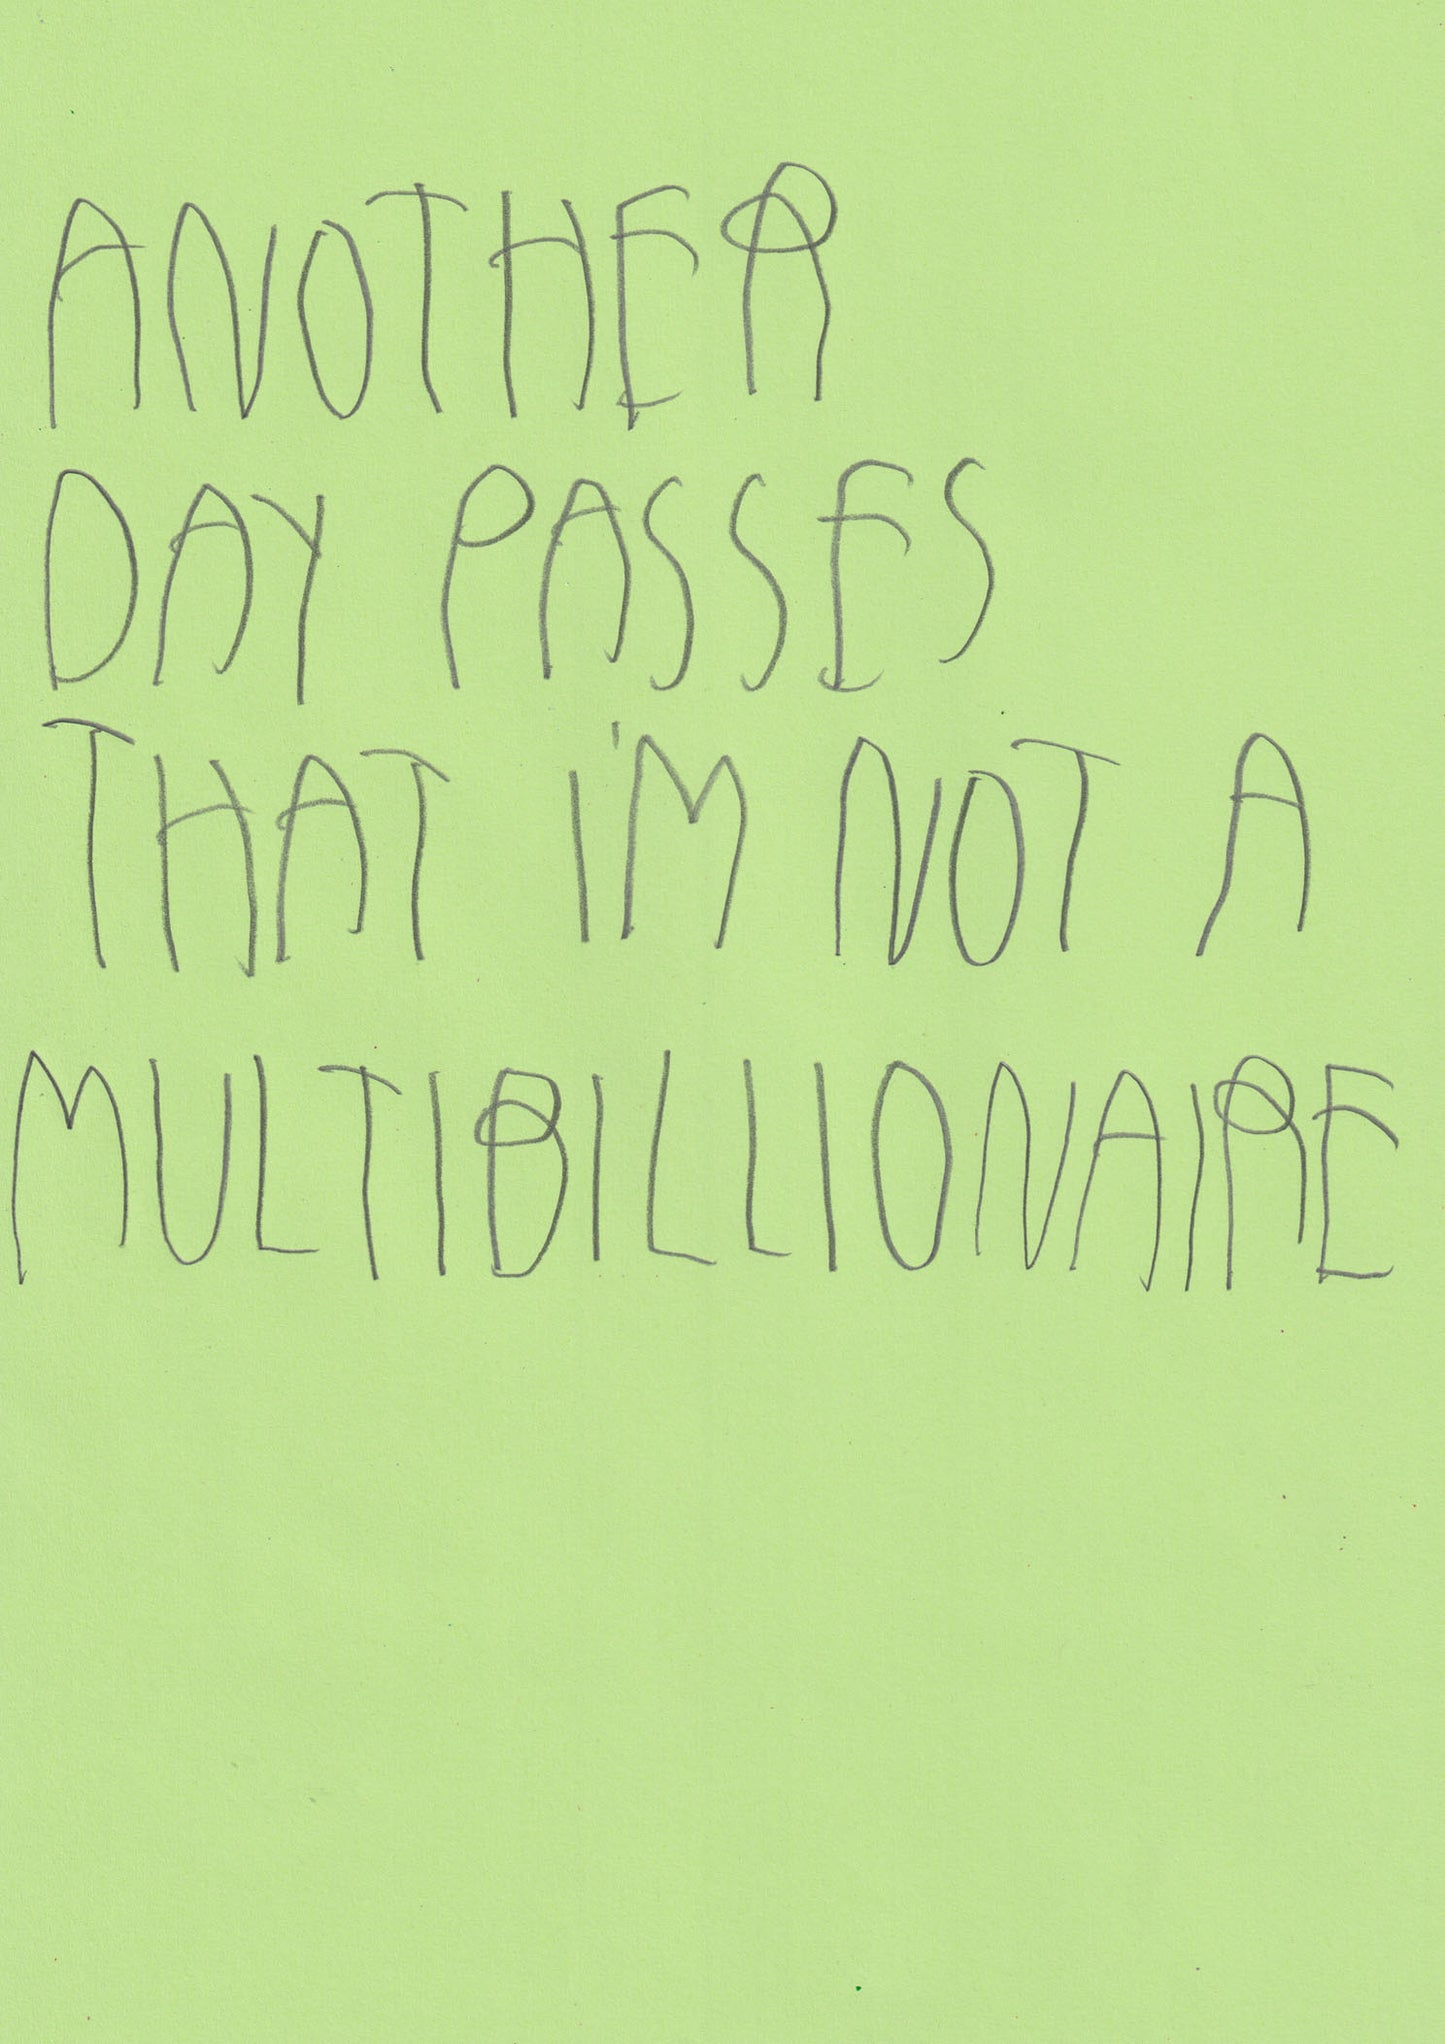 ANOTHER
DAY PASSES
THAT I'M NOT A
MULTIBILLIONAIRE